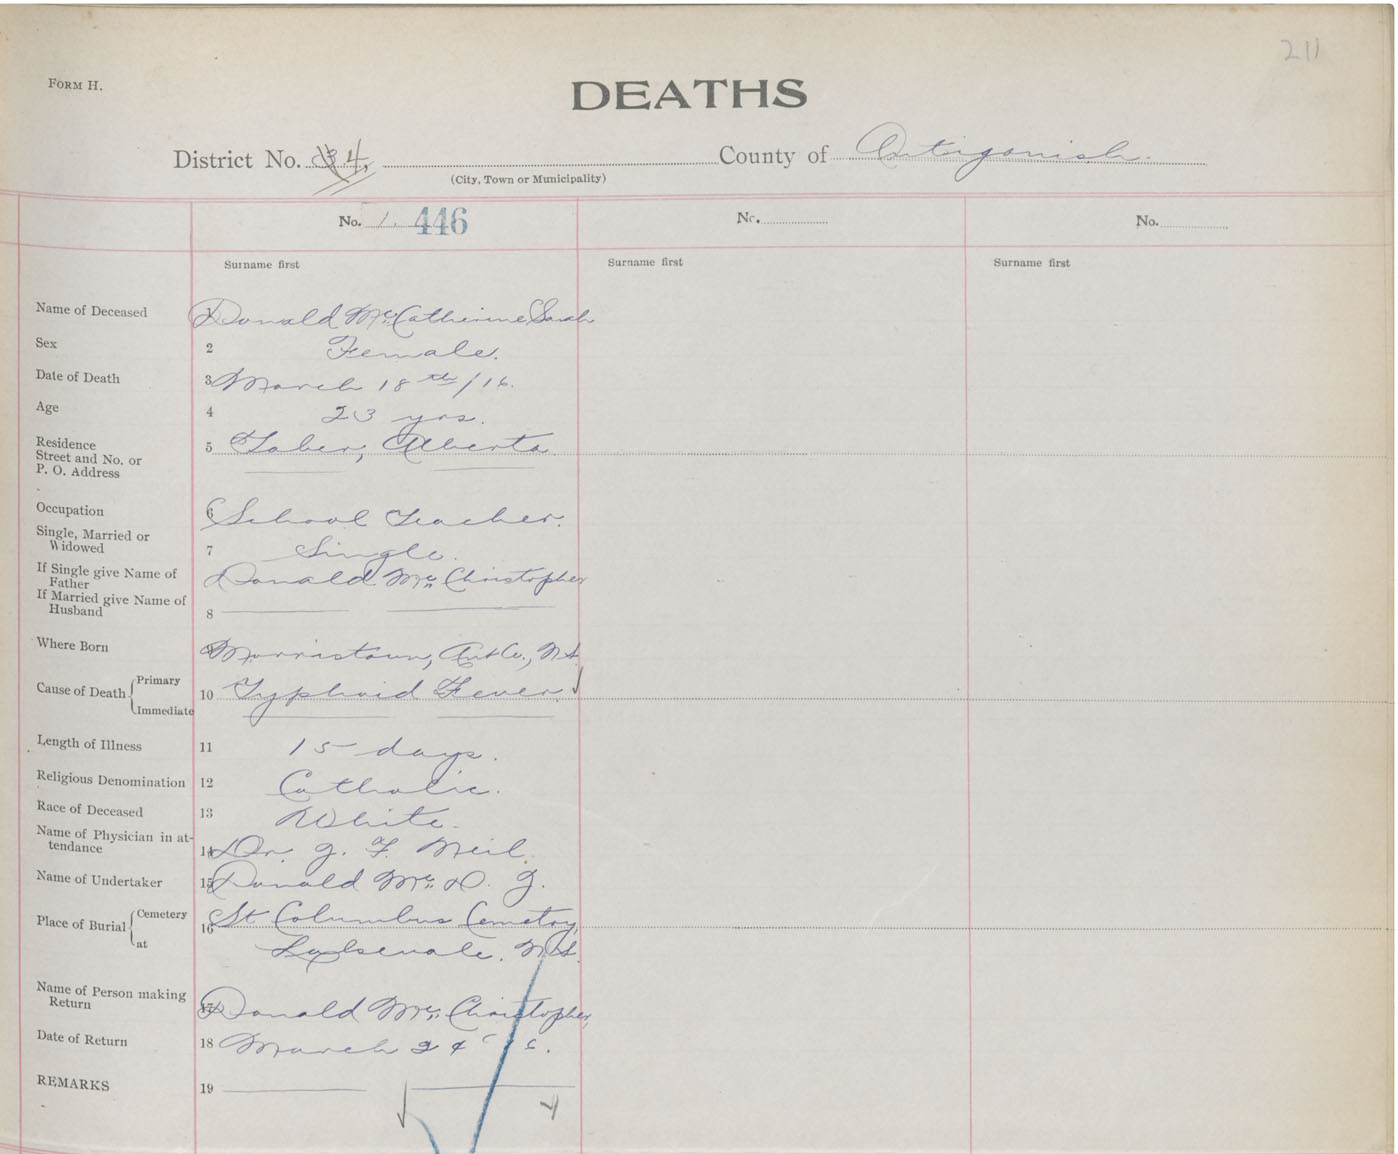 211
FORM H.
DEATHS
District No. 34, County of Antigonish.
(City, Town or Municipality)
No. 1. 446 No. No.
Surname first Surname first Surname first
Name of Deceased 1 Donald Mc. Catherine Sarah
Sex 2 Female.
Date of Death 3 March 18th/16.
Age 4 23 yrs.
Residence
Street and No. or
P. O. Address
5 Taber, Alberta
Occupation 6 School Teacher.
Single, Married or
Widowed
7 Single.
If Single give Name of
Father
Donald Mc. Christopher
If Married give Name of
Husband
8
Where Born 9 Morristown, Ant Co., N.S.
Cause of Death Primary
Immediate
10 Typhoid Fever
Length of Illness 11 15 days.
Religious Denomination 12 Catholic.
Race of Deceased 13 White.
Name of Physician in at-
tendance
14 Dr. J. F. Neil.
Name of Undertaker 15 Donald Mc. D. J.
Place of Burial Cemetery
at
16 St Columbus Cemetry,
N.S.
Name of Person making
Return
17 Donald Mc. Christopher,
Date of Return 18 March 24
REMARKS 19
4